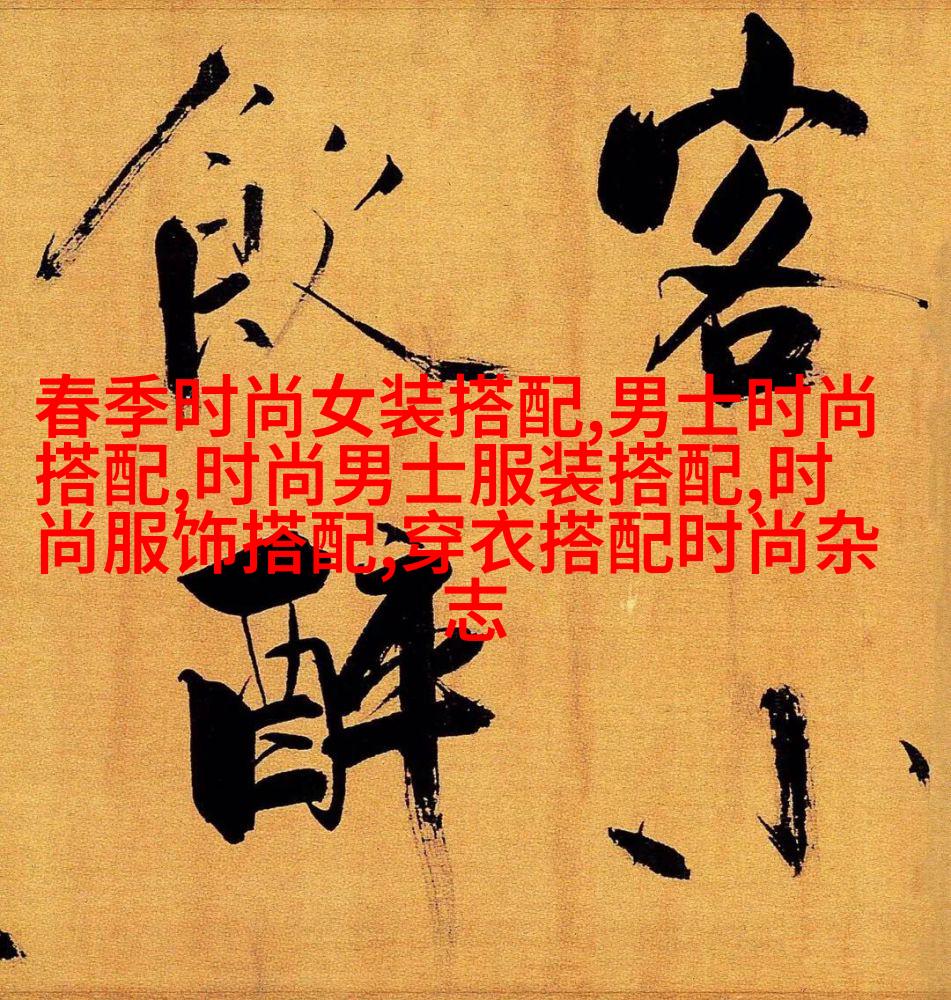 客小
飲醉
春季时尚女装搭配,男士时尚
搭配,时尚男士服装搭配,时
尚服饰搭配,穿衣搭配时尚杂
志